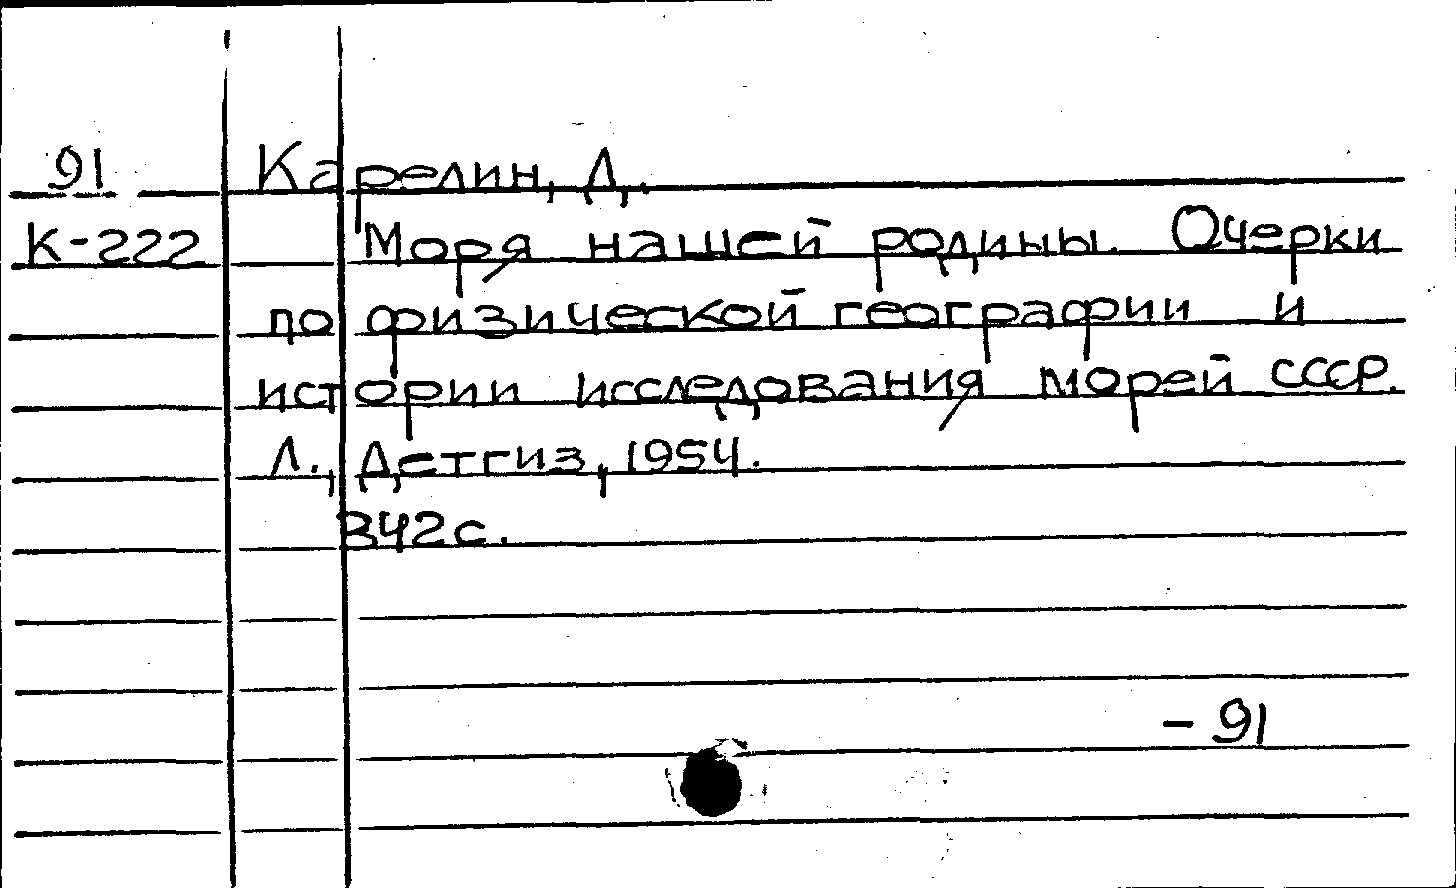 91 Карелин, Д.
К-222 Моря нашей родины. Очерки
по физической географии и
истории исследования морей СССР.
Л., Детгиз, 1954.
342с.
- 91